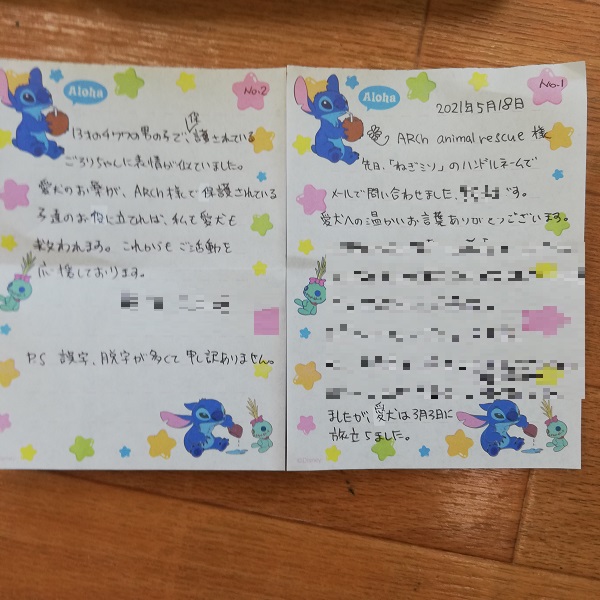 Aloha
No.1
2021年5月18日
ARCh animal rescue 様
先日、「ねぎミソ」のハンドルネームで
メールで問い合わせました、です。
愛犬への温かいお言葉ありがとうございます。
ましたが、愛犬は3月3日に
旅立ちました。
©Disney
Aloha
No.2
13才のオスの男の子で、保護されている
ごろりちゃんに表情が似ていました。
愛犬のお が、ARCh様で保護されている
子達のお役に立てれば、私も愛犬も
救われます。これからもご活動を
応援しております。
P.S 誤字、脱字が多くて申し訳ありません。